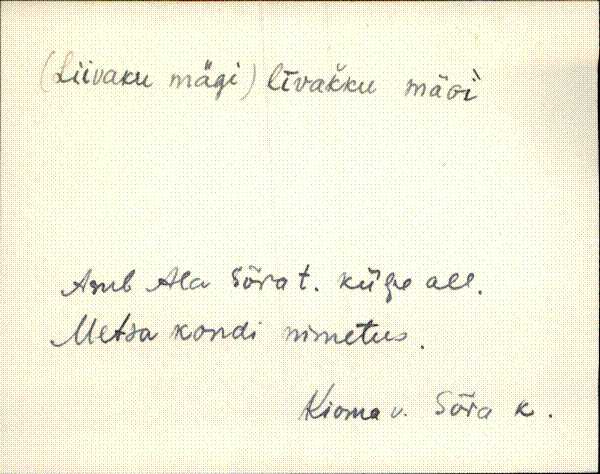 (Liivaku mägi) līvakku mägì
Asub Ala Sõra t. külje all.
Metsa kondi nimetus.
Kioma v. Sõra k.